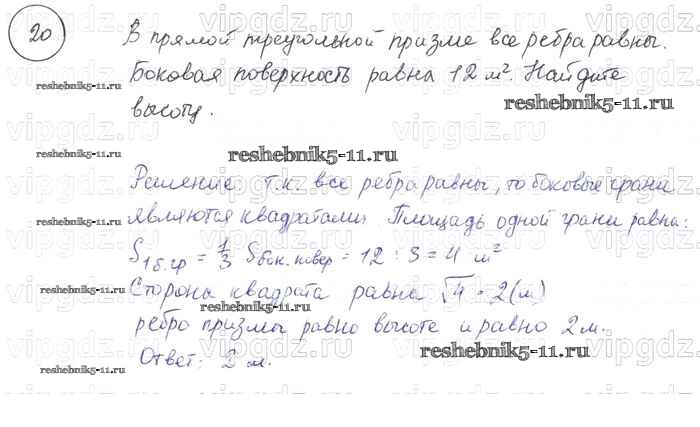 20
В прямой треугольной призме все ребра равны.
Боковая поверхность равна 12 м². Найдите
высоту.
Решение: т.к. все ребра равны, то боковые грани
являются квадратами. Площадь одной грани равна:
S1б.гр = 1/3 Sбок.повер = 12 : 3 = 4 м²
Сторона квадрата равна √4 = 2(м)
ребро призмы равно высоте и равно 2 м.
Ответ: 2 м.
vipgdz.ru
reshebnik5-11.ru
reshebnik5-11.ru
reshebnik5-11.ru
reshebnik5-11.ru
reshebnik5-11.ru
reshebnik5-11.ru
reshebnik5-11.ru
reshebnik5-11.ru